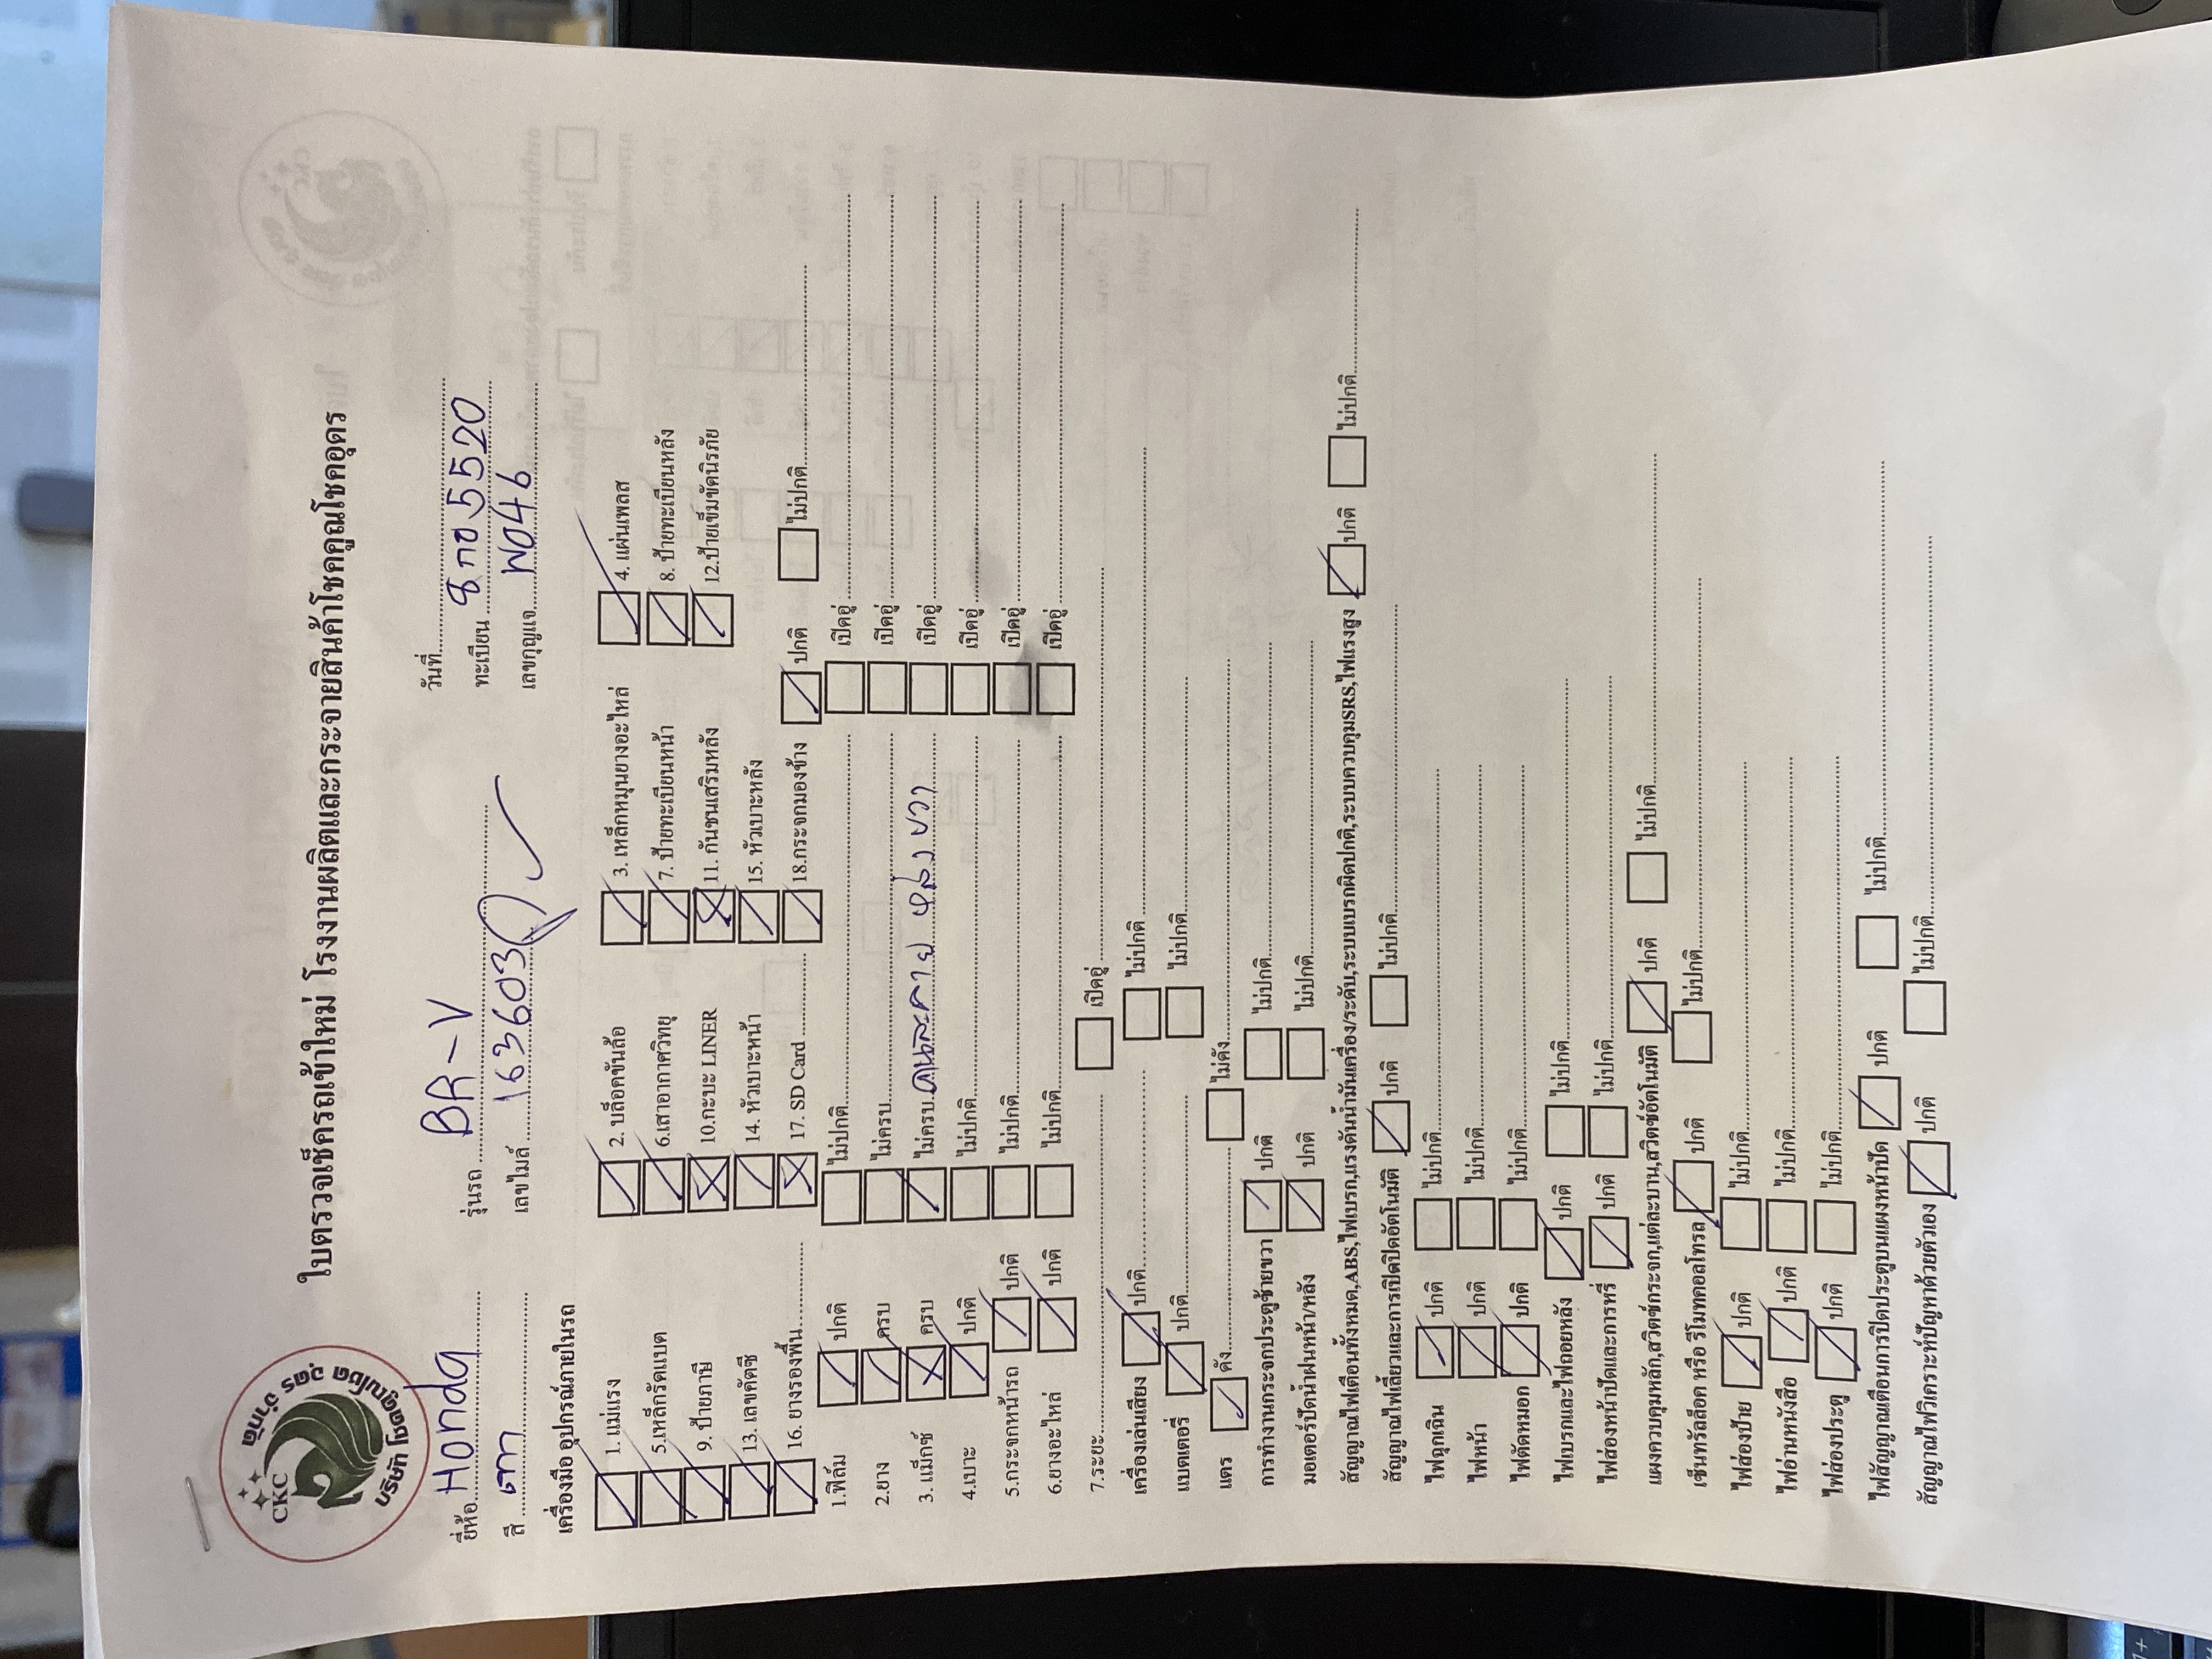 CKC
บริษัท โชคคูณโชค อุดร จำกัด
ใบตรวจเช็ครถเข้าใหม่ โรงงานผลิตและกระจายสินค้าโชคคูณโชคอุดร
วันที่
ยี่ห้อ Honda รุ่นรถ BR-V ทะเบียน 8กอ 5520
สี เทา เลขไมล์ 163603 เลขกุญแจ W046
เครื่องมือ อุปกรณ์ภายในรถ
1. แม่แรง 2. บล็อคขันล้อ 3. เหล็กหมุนยางอะไหล่ 4. แผ่นเพลส
5.เหล็กรัดแบต 6.เสาอากาศวิทยุ 7. ป้ายทะเบียนหน้า 8. ป้ายทะเบียนหลัง
9. ป้ายภาษี 10.กะบะ LINER 11. กันชนเสริมหลัง 12.ป้ายเข็มขัดนิรภัย
13. เลขคัตซี 14. หัวเบาะหน้า 15. หัวเบาะหลัง
16. ยางรองพื้น 17. SD Card 18.กระจกมองข้าง ปกติ ไม่ปกติ
1.ฟิล์ม ปกติ ไม่ปกติ เปิดอู่
2.ยาง ครบ ไม่ครบ เปิดอู่
3. แม็กซ์ ครบ ไม่ครบ เปิดอู่
4.เบาะ ปกติ ไม่ปกติ เปิดอู่
5.กระจกหน้ารถ ปกติ ไม่ปกติ เปิดอู่
6.ยางอะไหล่ ปกติ ไม่ปกติ เปิดอู่
7.ระยะ เปิดอู่
เครื่องเล่นเสียง ปกติ ไม่ปกติ
แบตเตอรี่ ปกติ ไม่ปกติ
แตร ดัง ไม่ดัง
การทำงานกระจกประตูซ้ายขวา ปกติ ไม่ปกติ
มอเตอร์ปัดน้ำฝนหน้า/หลัง ปกติ ไม่ปกติ
สัญญาณไฟเตือนทั้งหมด,ABS,ไฟเบรก,แรงดันน้ำมันเครื่อง/ระดับ,ระบบเบรกผิดปกติ,ระบบควบคุมSRS,ไฟแรงสูง ปกติ ไม่ปกติ
สัญญาณไฟเลี้ยวและการเปิดปิดอัตโนมัติ ปกติ ไม่ปกติ
ไฟฉุกเฉิน ปกติ ไม่ปกติ
ไฟหน้า ปกติ ไม่ปกติ
ไฟตัดหมอก ปกติ ไม่ปกติ
ไฟเบรกและไฟถอยหลัง ปกติ ไม่ปกติ
ไฟส่องหน้าปัดและการหรี่ ปกติ ไม่ปกติ
แผงควบคุมหลัก,สวิตซ์กระจก,แต่ละบาน,สวิตซ์อัตโนมัติ ปกติ ไม่ปกติ
เซ็นทรัลล็อค หรือ รีโมทคอลโทรล ปกติ ไม่ปกติ
ไฟส่องป้าย ปกติ ไม่ปกติ
ไฟอ่านหนังสือ ปกติ ไม่ปกติ
ไฟส่องประตู ปกติ ไม่ปกติ
ไฟสัญญาณเตือนการปิดประตูบนแผงหน้าปัด ปกติ ไม่ปกติ
สัญญาณไฟวิเคราะห์ปัญหาด้วยตัวเอง ปกติ ไม่ปกติ